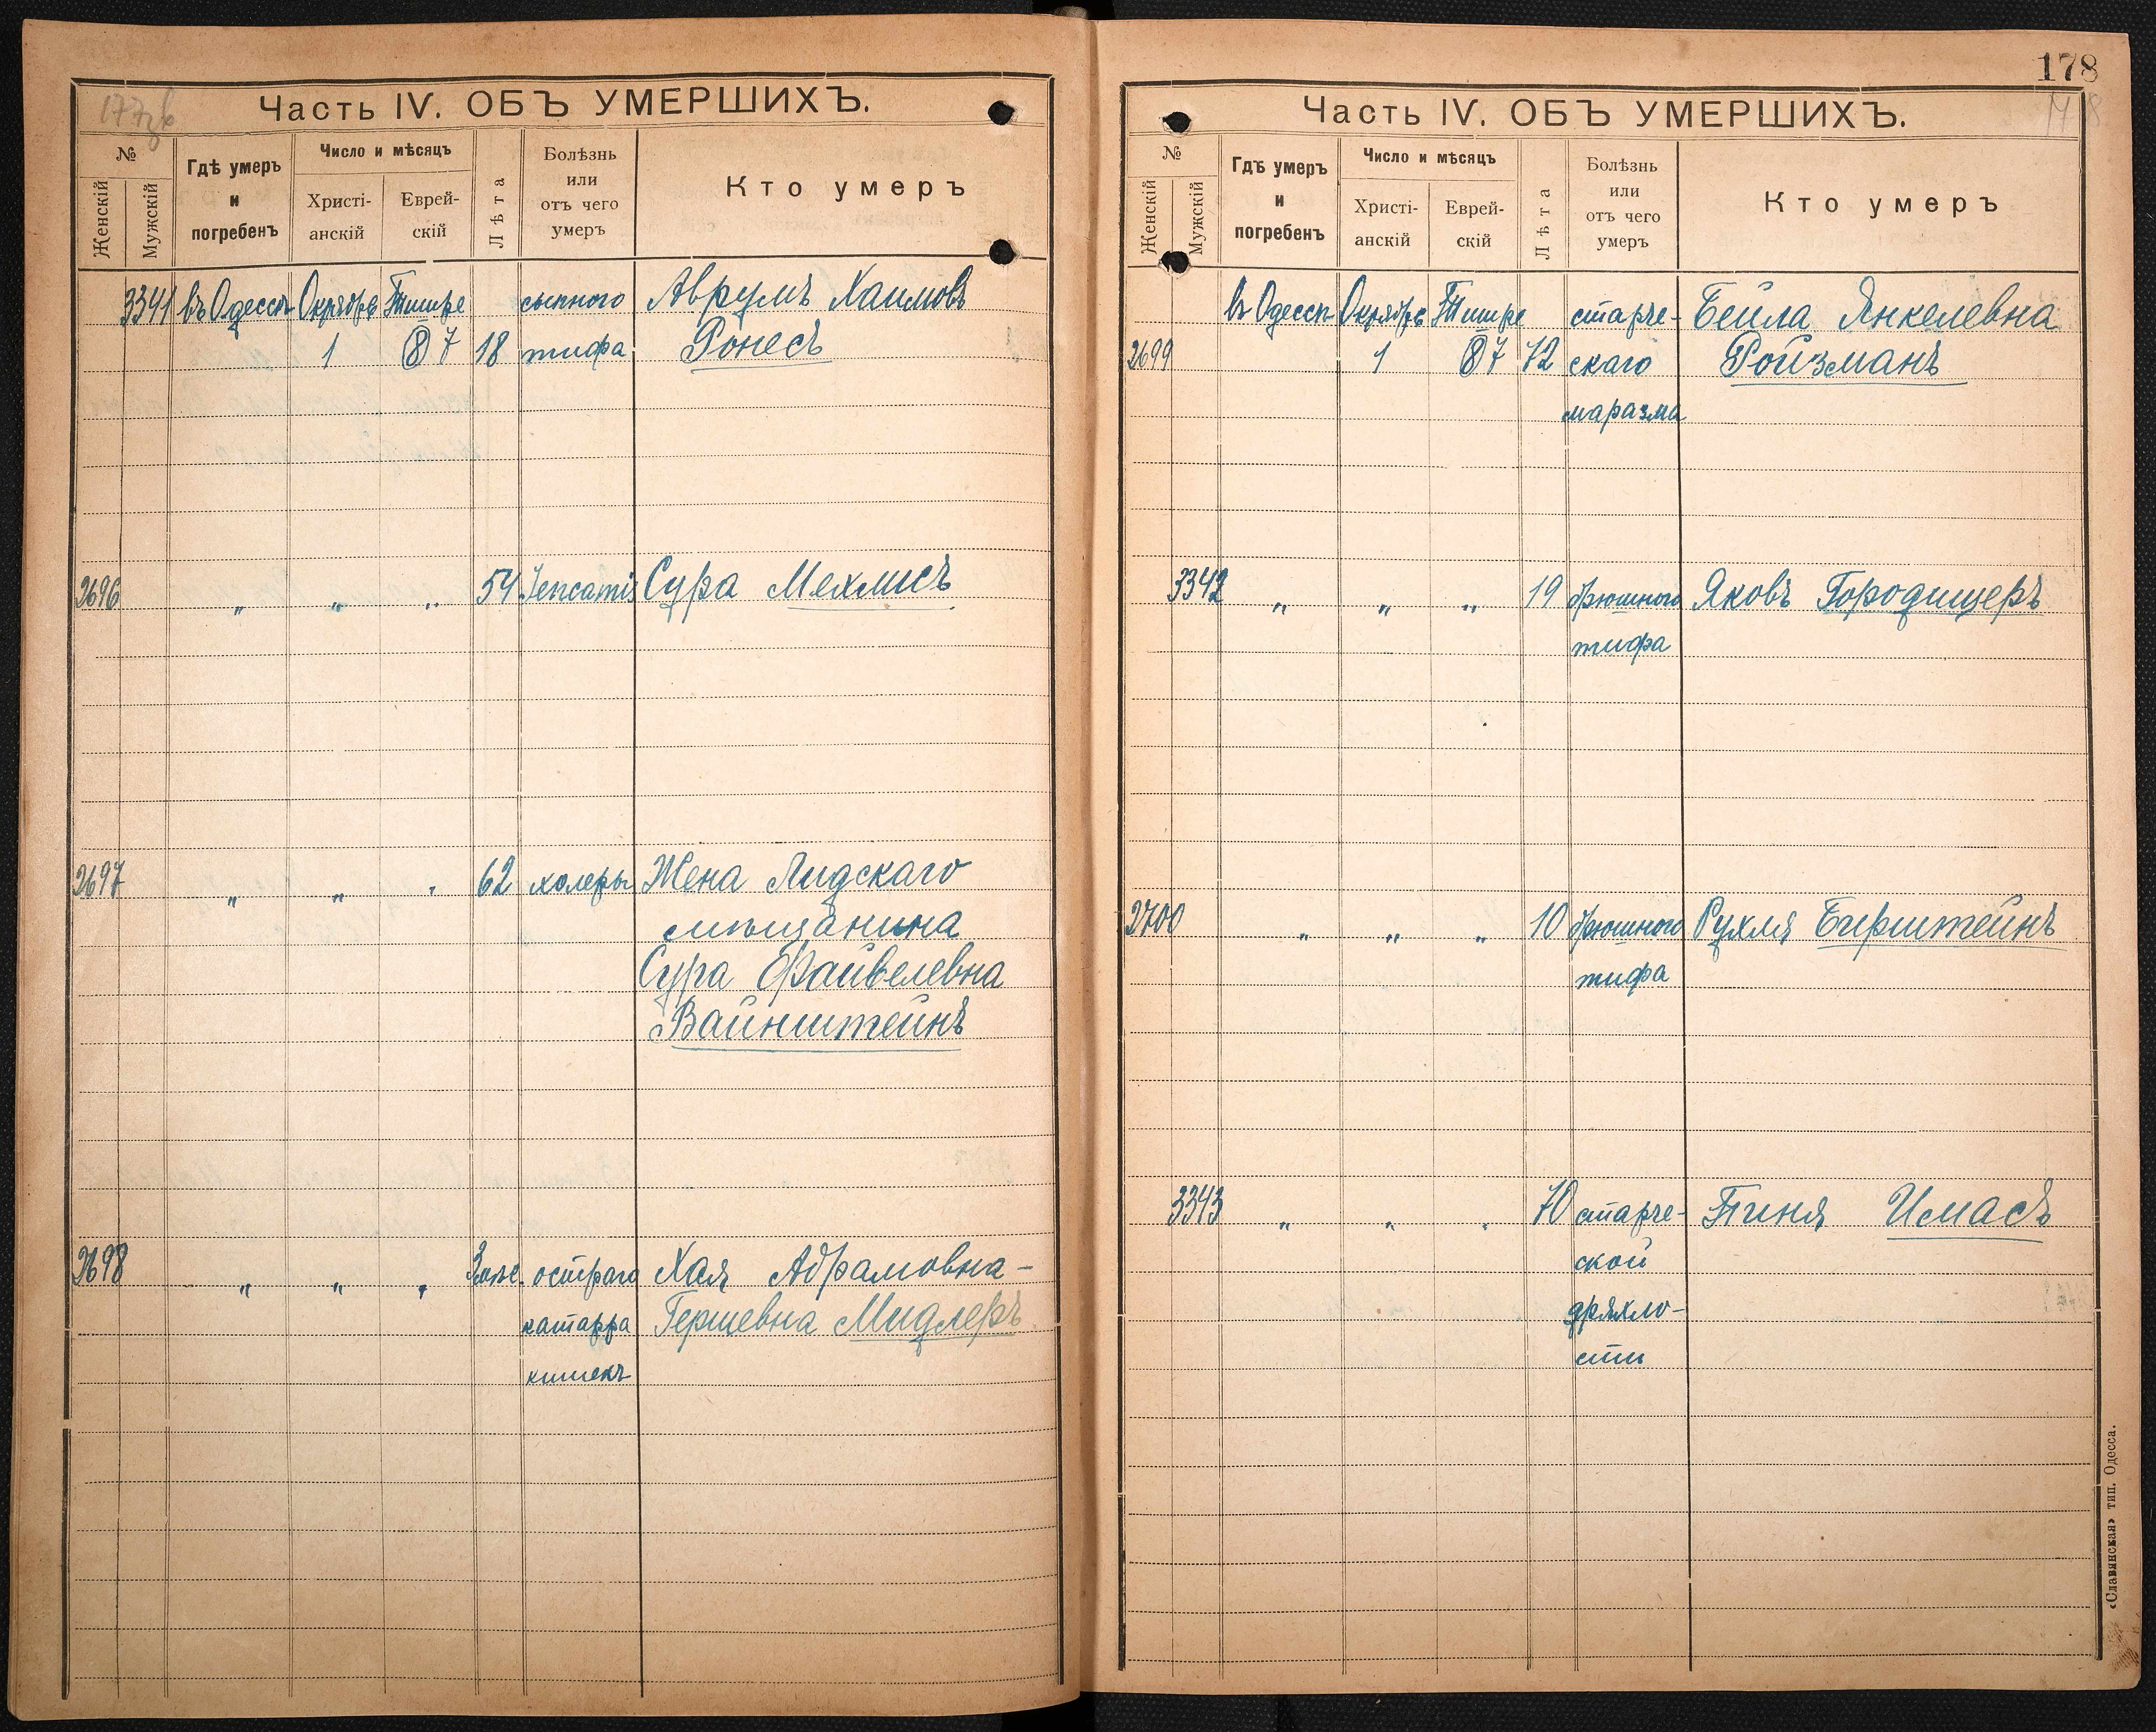 177об
Часть IV. ОБЪ УМЕРШИХЪ.
№
Женскій
Мужскій
Гдѣ умеръ
и
погребенъ
Число и мѣсяцъ
Христі-
анскій
Еврей-
скій
Лѣта
Болѣзнь
или
отъ чего
умеръ
Кто умеръ
3341 въ Одессѣ Октября Тишре сыпного Аврумъ Хаимовъ
1 87 18 тифа Ронесъ
2696 „ „ „ 54 Сура Мехлисъ
2697 „ „ „ 62 холеры Жена Лидскаго
мѣщанина
Сура Файвелевна
Вайнштейнъ
2698 „ „ „ остраго Хая Абрамовна-
катарра Гершевна Мидлеръ
кишекъ
178
Часть IV. ОБЪ УМЕРШИХЪ.
№
Женскій
Мужскій
Гдѣ умеръ
и
погребенъ
Число и мѣсяцъ
Христі-
анскій
Еврей-
скій
Лѣта
Болѣзнь
или
отъ чего
умеръ
Кто умеръ
въ Одессѣ Октября Тишре старче- Бейла Янкелевна
2699 1 87 72 скаго Ройзманъ
маразма
3342 „ „ „ 19 брюшного Яковъ Городищеръ
тифа
2700 „ „ „ 10 брюшного Рухля Бирштейнъ
тифа
3343 „ „ „ 70 старче- Пиня Имасъ
ской
дряхло-
сти
«Славянская» тип. Одесса.